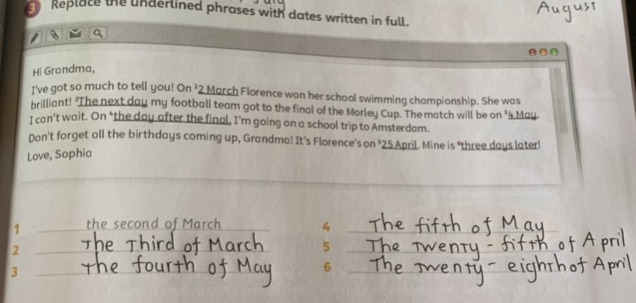 3 Replace the underlined phrases with dates written in full.
August
Hi Grandma,
I've got so much to tell you! On ¹2 March Florence won her school swimming championship. She was
brilliant! ²The next day my football team got to the final of the Morley Cup. The match will be on ³4 May.
I can't wait. On ⁴the day after the final, I'm going on a school trip to Amsterdam.
Don't forget all the birthdays coming up, Grandma! It's Florence's on ⁵25 April. Mine is ⁶three days later!
Love, Sophia
1 the second of March
2 The Third of March
3 the fourth of May
4 The fifth of May
5 The Twenty-fifth of April
6 The Twenty-eighth of April